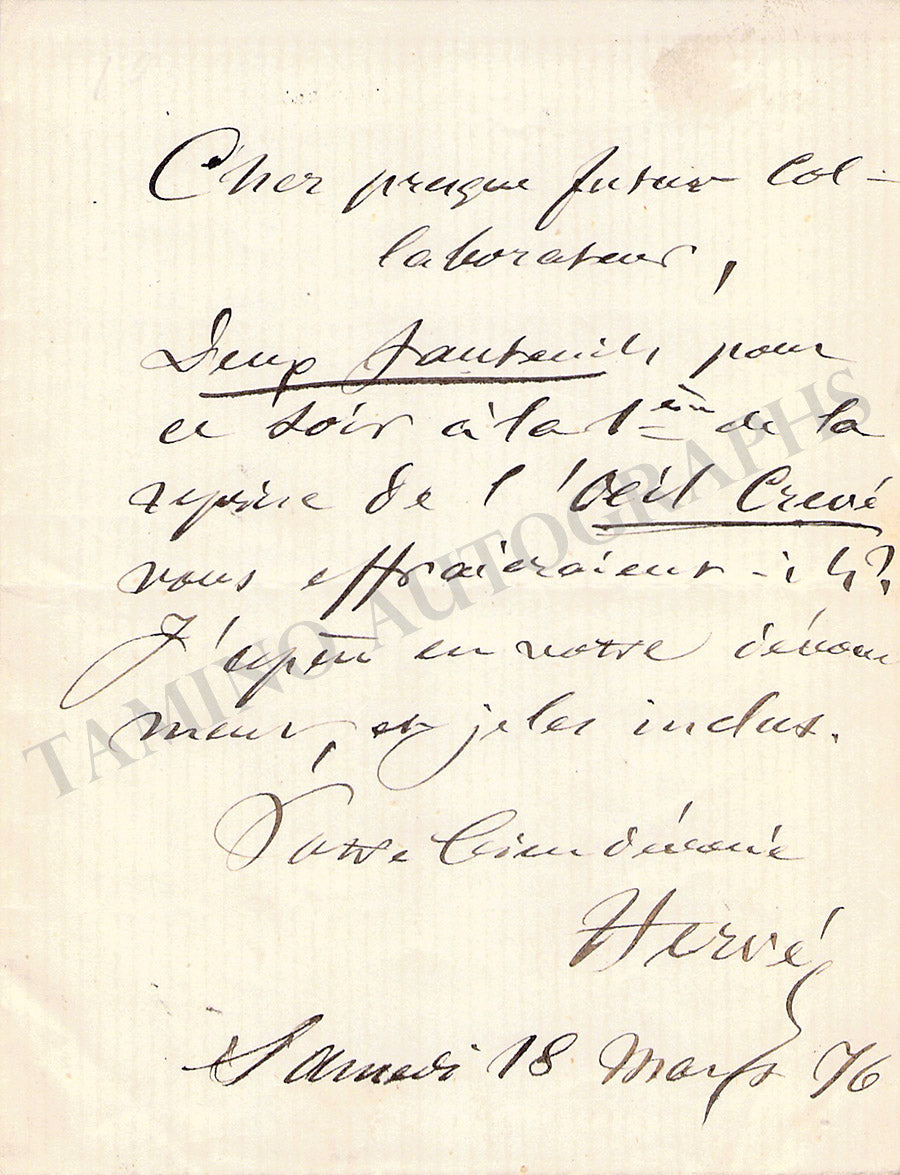 Cher presque futur Col-
laborateur,
Deux fauteuils pour
ce soir à la 1ère de la
reprise de l'Oeil Crevé
vous effraieraient-ils?
J'espère en votre dévoue
ment, et je les inclus.
Votre bien dévoué
Hervé
Samedi 18 Mars 76
TAMINO AUTOGRAPHS